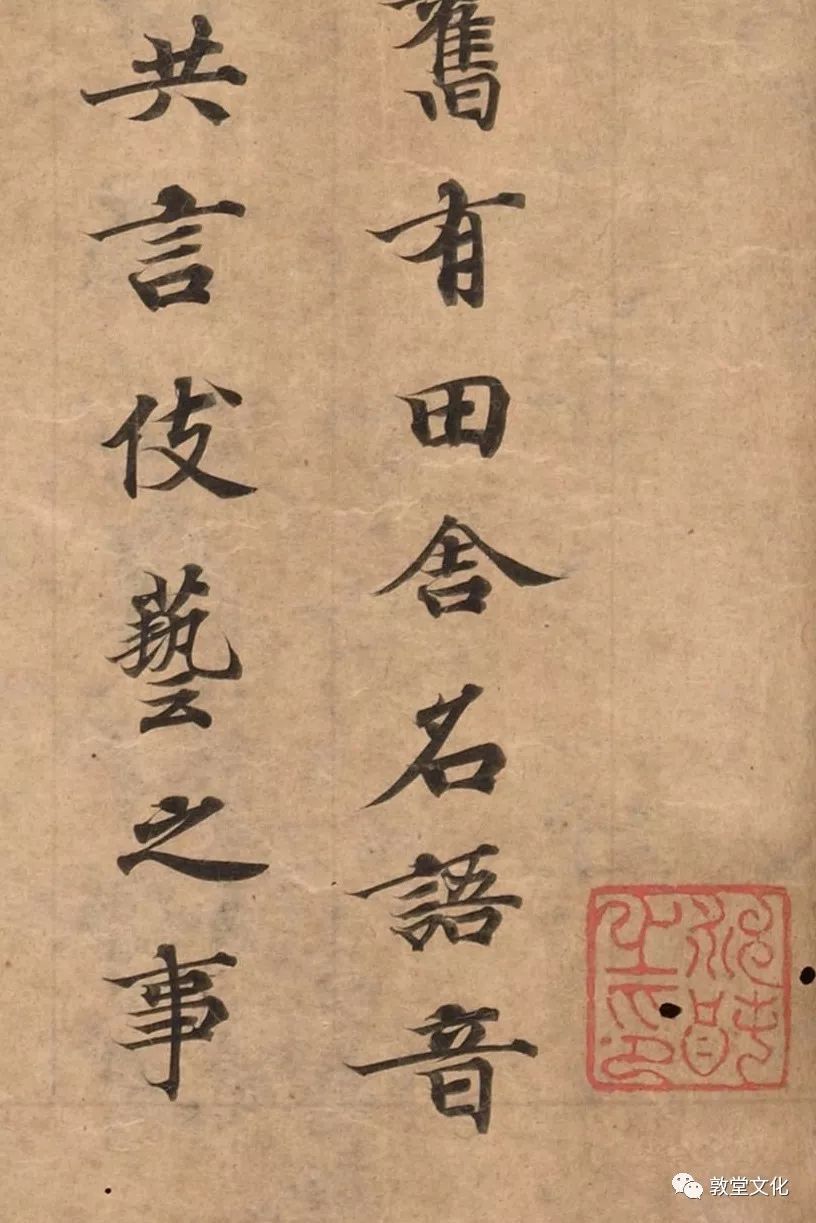 舊有田舍名語音
共言伎藝之事
敦堂文化